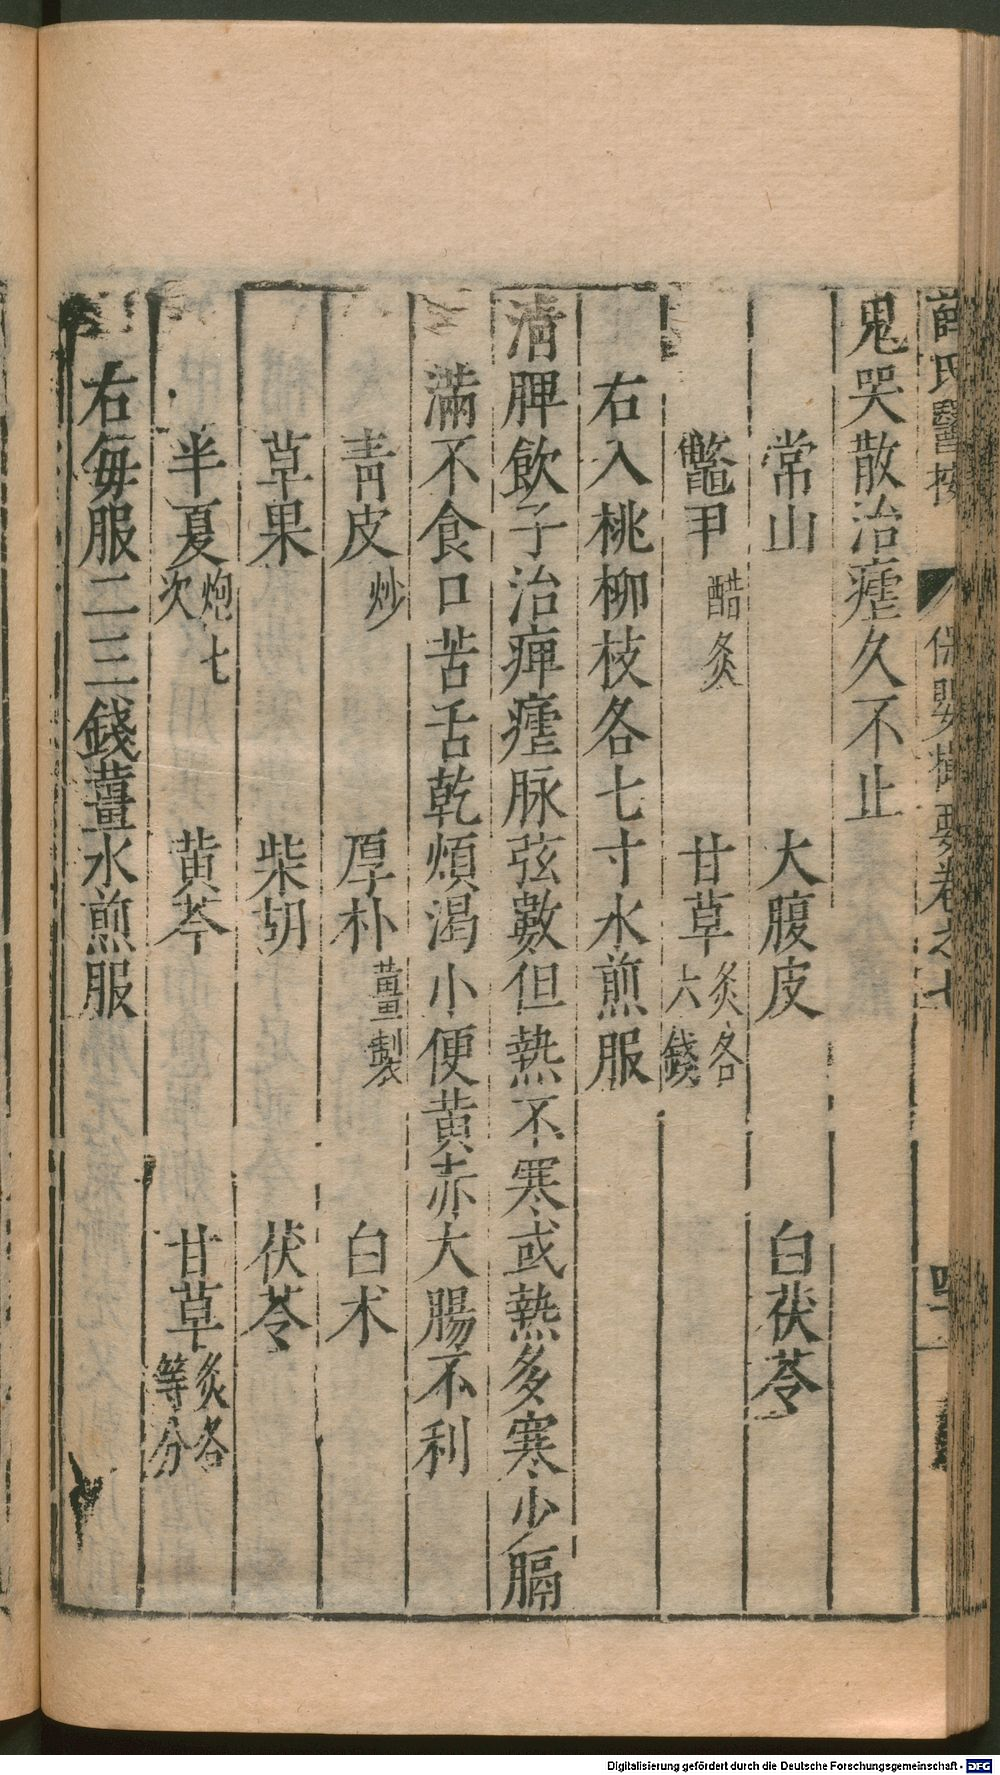 薛氏醫按　保嬰撮要卷之七
鬼哭散治瘧久不止
常山　大腹皮　白茯苓
鱉甲醋炙　甘草炙各六錢
右入桃柳枝各七寸水煎服
清脾飲子治痺瘧脉弦數但熱不寒或熱多寒少膈
滿不食口苦舌乾煩渴小便黄赤大腸不利
青皮炒　厚朴薑製　白术
草果　柴胡　茯苓
半夏炮七次　黄芩　甘草炙各等分
右每服二三錢薑水煎服
Digitalisierung gefördert durch die Deutsche Forschungsgemeinschaft - DFG